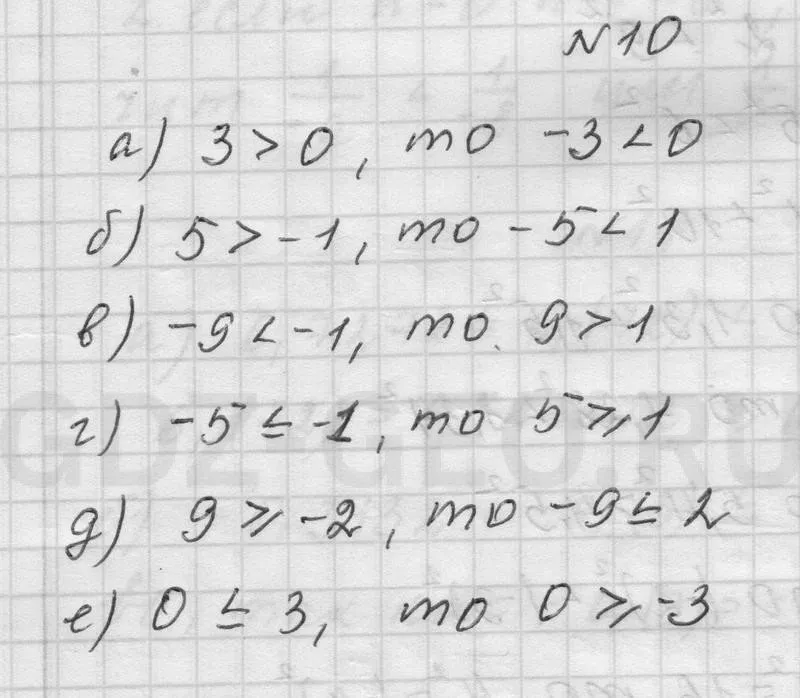 N10
а) 3 > 0, то -3 < 0
б) 5 > -1, то -5 < 1
в) -9 < -1, то 9 > 1
г) -5 ≤ -1, то 5 ≥ 1
GDZ-GEO.RU
д) 9 ≥ -2, то -9 ≤ 2
е) 0 ≤ 3, то 0 ≥ -3